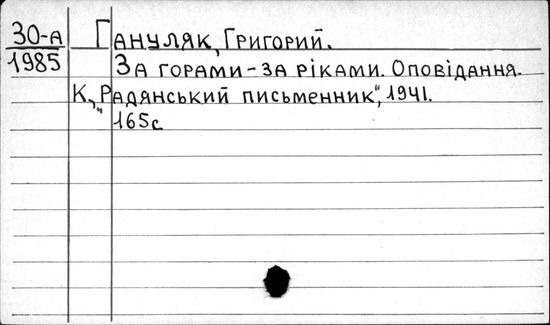 30-а
1985
Гануляк, Григорий.
За горами - за ріками. Оповідання.
К., "Радянський письменник", 1941.
165с